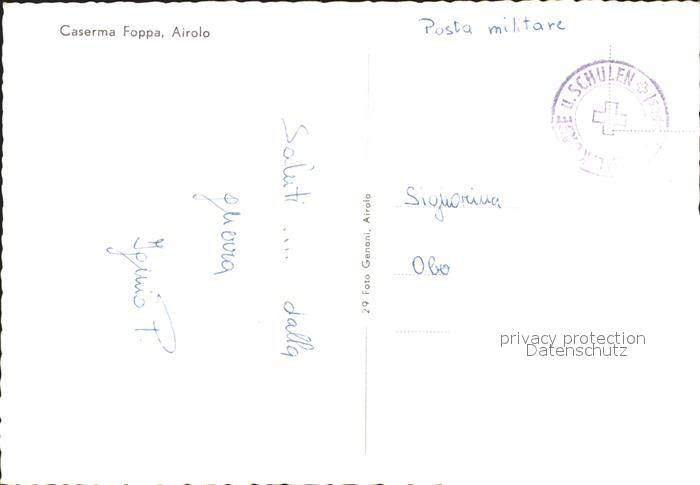 Caserma Foppa, Airolo
Posta militare
KURSE U. SCHULEN
Saluti .... dalla
guerra
Iginio P.
29 Foto Genoni, Airolo
Signorina
Obo
privacy protection
Datenschutz